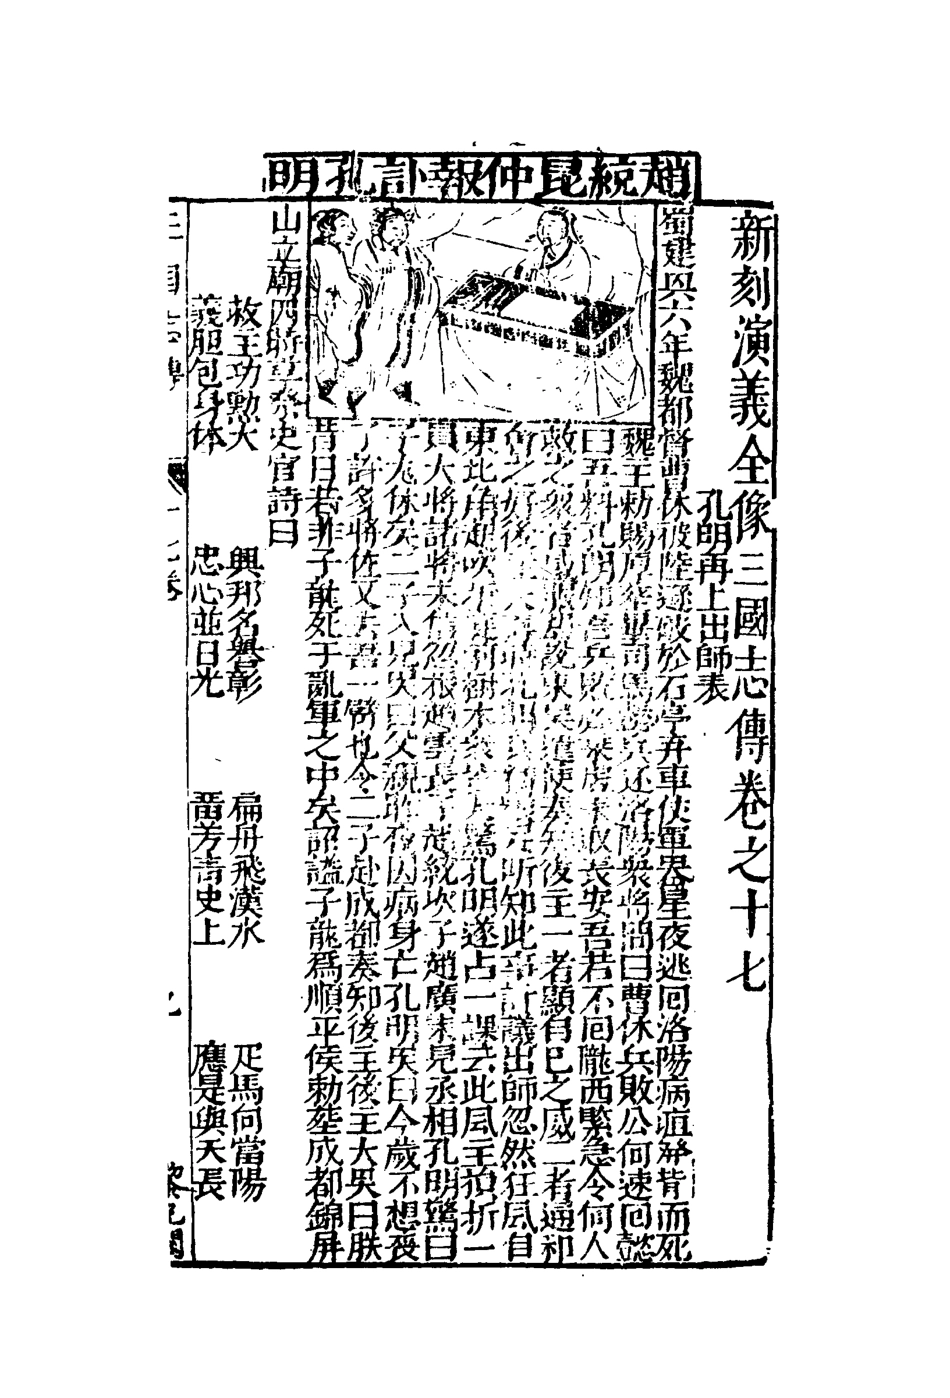 趙統昆仲報訃孔明
新刻演義全像三國志傳卷之十七
孔明再上出師表
蜀建興六年魏都督曹休被陸遜破於石亭弃車使軍畧星夜逃回洛陽病疽發背而死
魏王勅賜厚葬畢司馬懿兵还洛陽衆將問曰曹休兵敗公何速回懿
曰吾料孔明知吾兵敗必乘虛來取長安吾若不回隴西緊急令何人
救之衆皆以懼說東吳遣使奏知後主一者顯自巳之威二者通和
會之好後主大喜孔明所知此事計議出師忽然狂風自
東北角起吹折庭前樹木衆皆大驚孔明遂占一課云此風主損折一
員大將諸將未信忽報趙雲長子趙統次子趙廣來見丞相孔明驚曰
子龍休矣二子入見哭曰父親昨夜因病身亡孔明哭曰今歲不想丧
了許多將佐又失吾一臂也令二子赴成都奏知後主後主大哭曰朕
昔日若非子龍死于亂軍之中矣詔謚子龍爲順平侯勅塟成都錦屏
山立廟四時享祭史官詩曰
救主功勲大　興邦名譽彰　扁舟飛漢水　疋馬向當陽
義胆包身体　忠心並日光　畱芳青史上　應是與天長
三國志傳　十七卷　乙